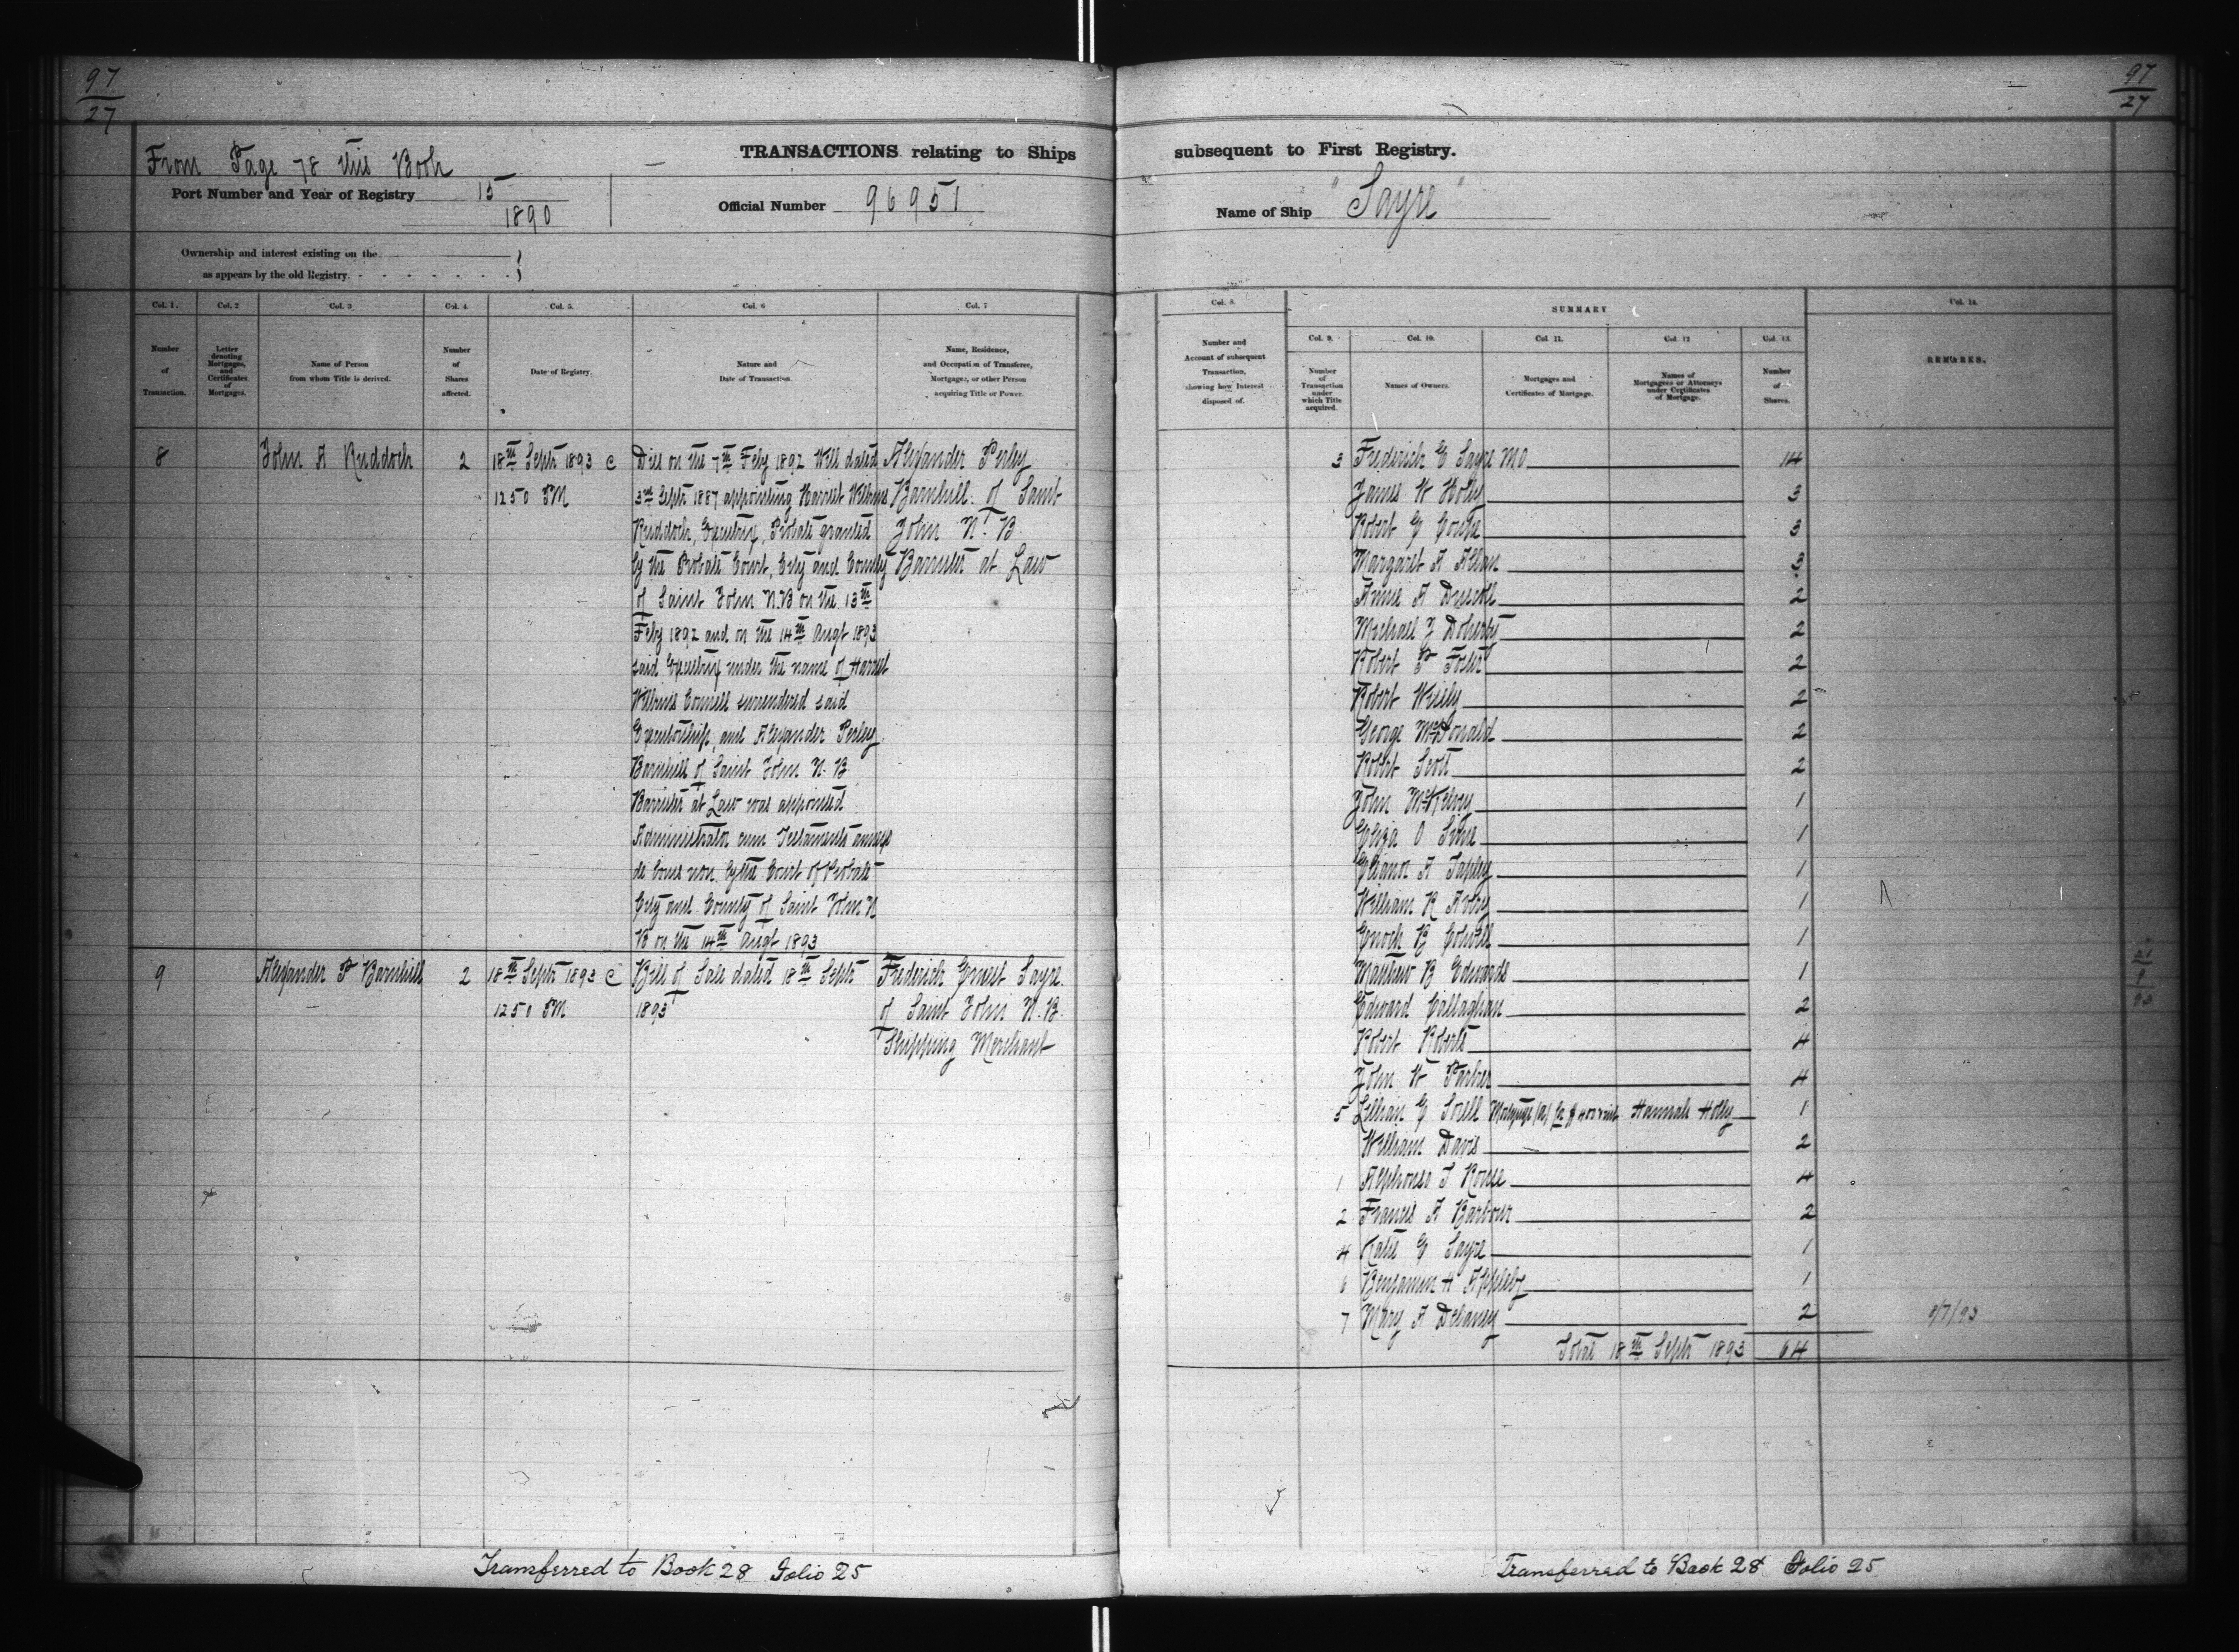 97
27
97
27
From Page 78 this Book
TRANSACTIONS relating to Ships
subsequent to First Registry.
Port Number and Year of Registry 15
1890
Official Number 96951
Name of Ship "Sayre"
Ownership and interest existing on the
as appears by the old Registry.
Col. 1.
Number
of
Transaction.
Col. 2
Letter
denoting
Mortgages,
and
Certificates
of
Mortgages.
Col. 3
Name of Person
from whom Title is derived.
Col. 4
Number
of
Shares
affected.
Col. 5.
Date of Registry.
Col. 6
Nature and
Date of Transaction.
Col. 7
Name, Residence,
and Occupation of Transferee,
Mortgagee, or other Person
acquiring Title or Power.
8
John A Ruddock
2
18th Septr 1893 C
12 50 PM
Died on the 7th Feby 1892 Will dated
3rd Septr 1887 appointing Harriet Wilkins
Ruddock, Executrix, Probate granted
by the Probate Court, City and County
of Saint John N.B on the 13th
Feby 1892 and on the 14th Augt 1893
said Executrix under the name of Harriet
Wilkins Connell surrendered said
Executorship, and Alexander Perley
Barnhill of Saint John N. B
Barrister at Law was appointed
Administrator cum Testamento annexo
de bonis non by the Court of Probate
City and County of Saint John N
B on the 14th Augt 1893
Alexander Perley
Barnhill of Saint
John N. B.
Barrister at Law
9
Alexander P Barnhill
2
18th Septr 1893 C
12 50 PM
Bill of Sale dated 18th Septr
1893
Frederick Ernest Sayre
of Saint John N.B.
Shipping Merchant
Transferred to Book 28 Folio 25
Col. 8.
Number and
Account of subsequent
Transaction,
showing how Interest
disposed of.
SUMMARY
Col. 9.
Number
of
Transaction
under
which Title
acquired.
Col. 10.
Names of Owners.
Col. 11.
Mortgages and
Certificates of Mortgage.
Col. 12
Names of
Mortgagees or Attorneys
under Certificates
of Mortgage.
Col. 13.
Number
of
Shares.
Col. 14.
REMARKS.
3 Frederick E Sayre MO 14
James W Holly 3
Robert G 3
Margaret A Allan 3
Annie A Driscoll 2
Michael J Doherty 2
Robert P Foster 2
Robert Wisely 2
George McDonald 2
Robert Scott 2
John McKelvey 1
Eliza O 1
Eleanor A Tapley 1
William R Avery 1
Enoch B Colwell 1
Matthew B Edwards 1
Edward Callaghan 2
Robert Roberts 4
John W Parker 4
5 Lillian G Mortgage (A) for $400 & int Hannah Holly 1
William Davis 2
1 Alphonso T Rouse 4
2 Francis A Barbour 2
4 Katie E Sayre 1
6 Benjamin H Appleby 1
7 Mary A Delaney 2
8/7/93
Total 18th Septr 1893 64
21
9
93
Transferred to Book 28 Folio 25